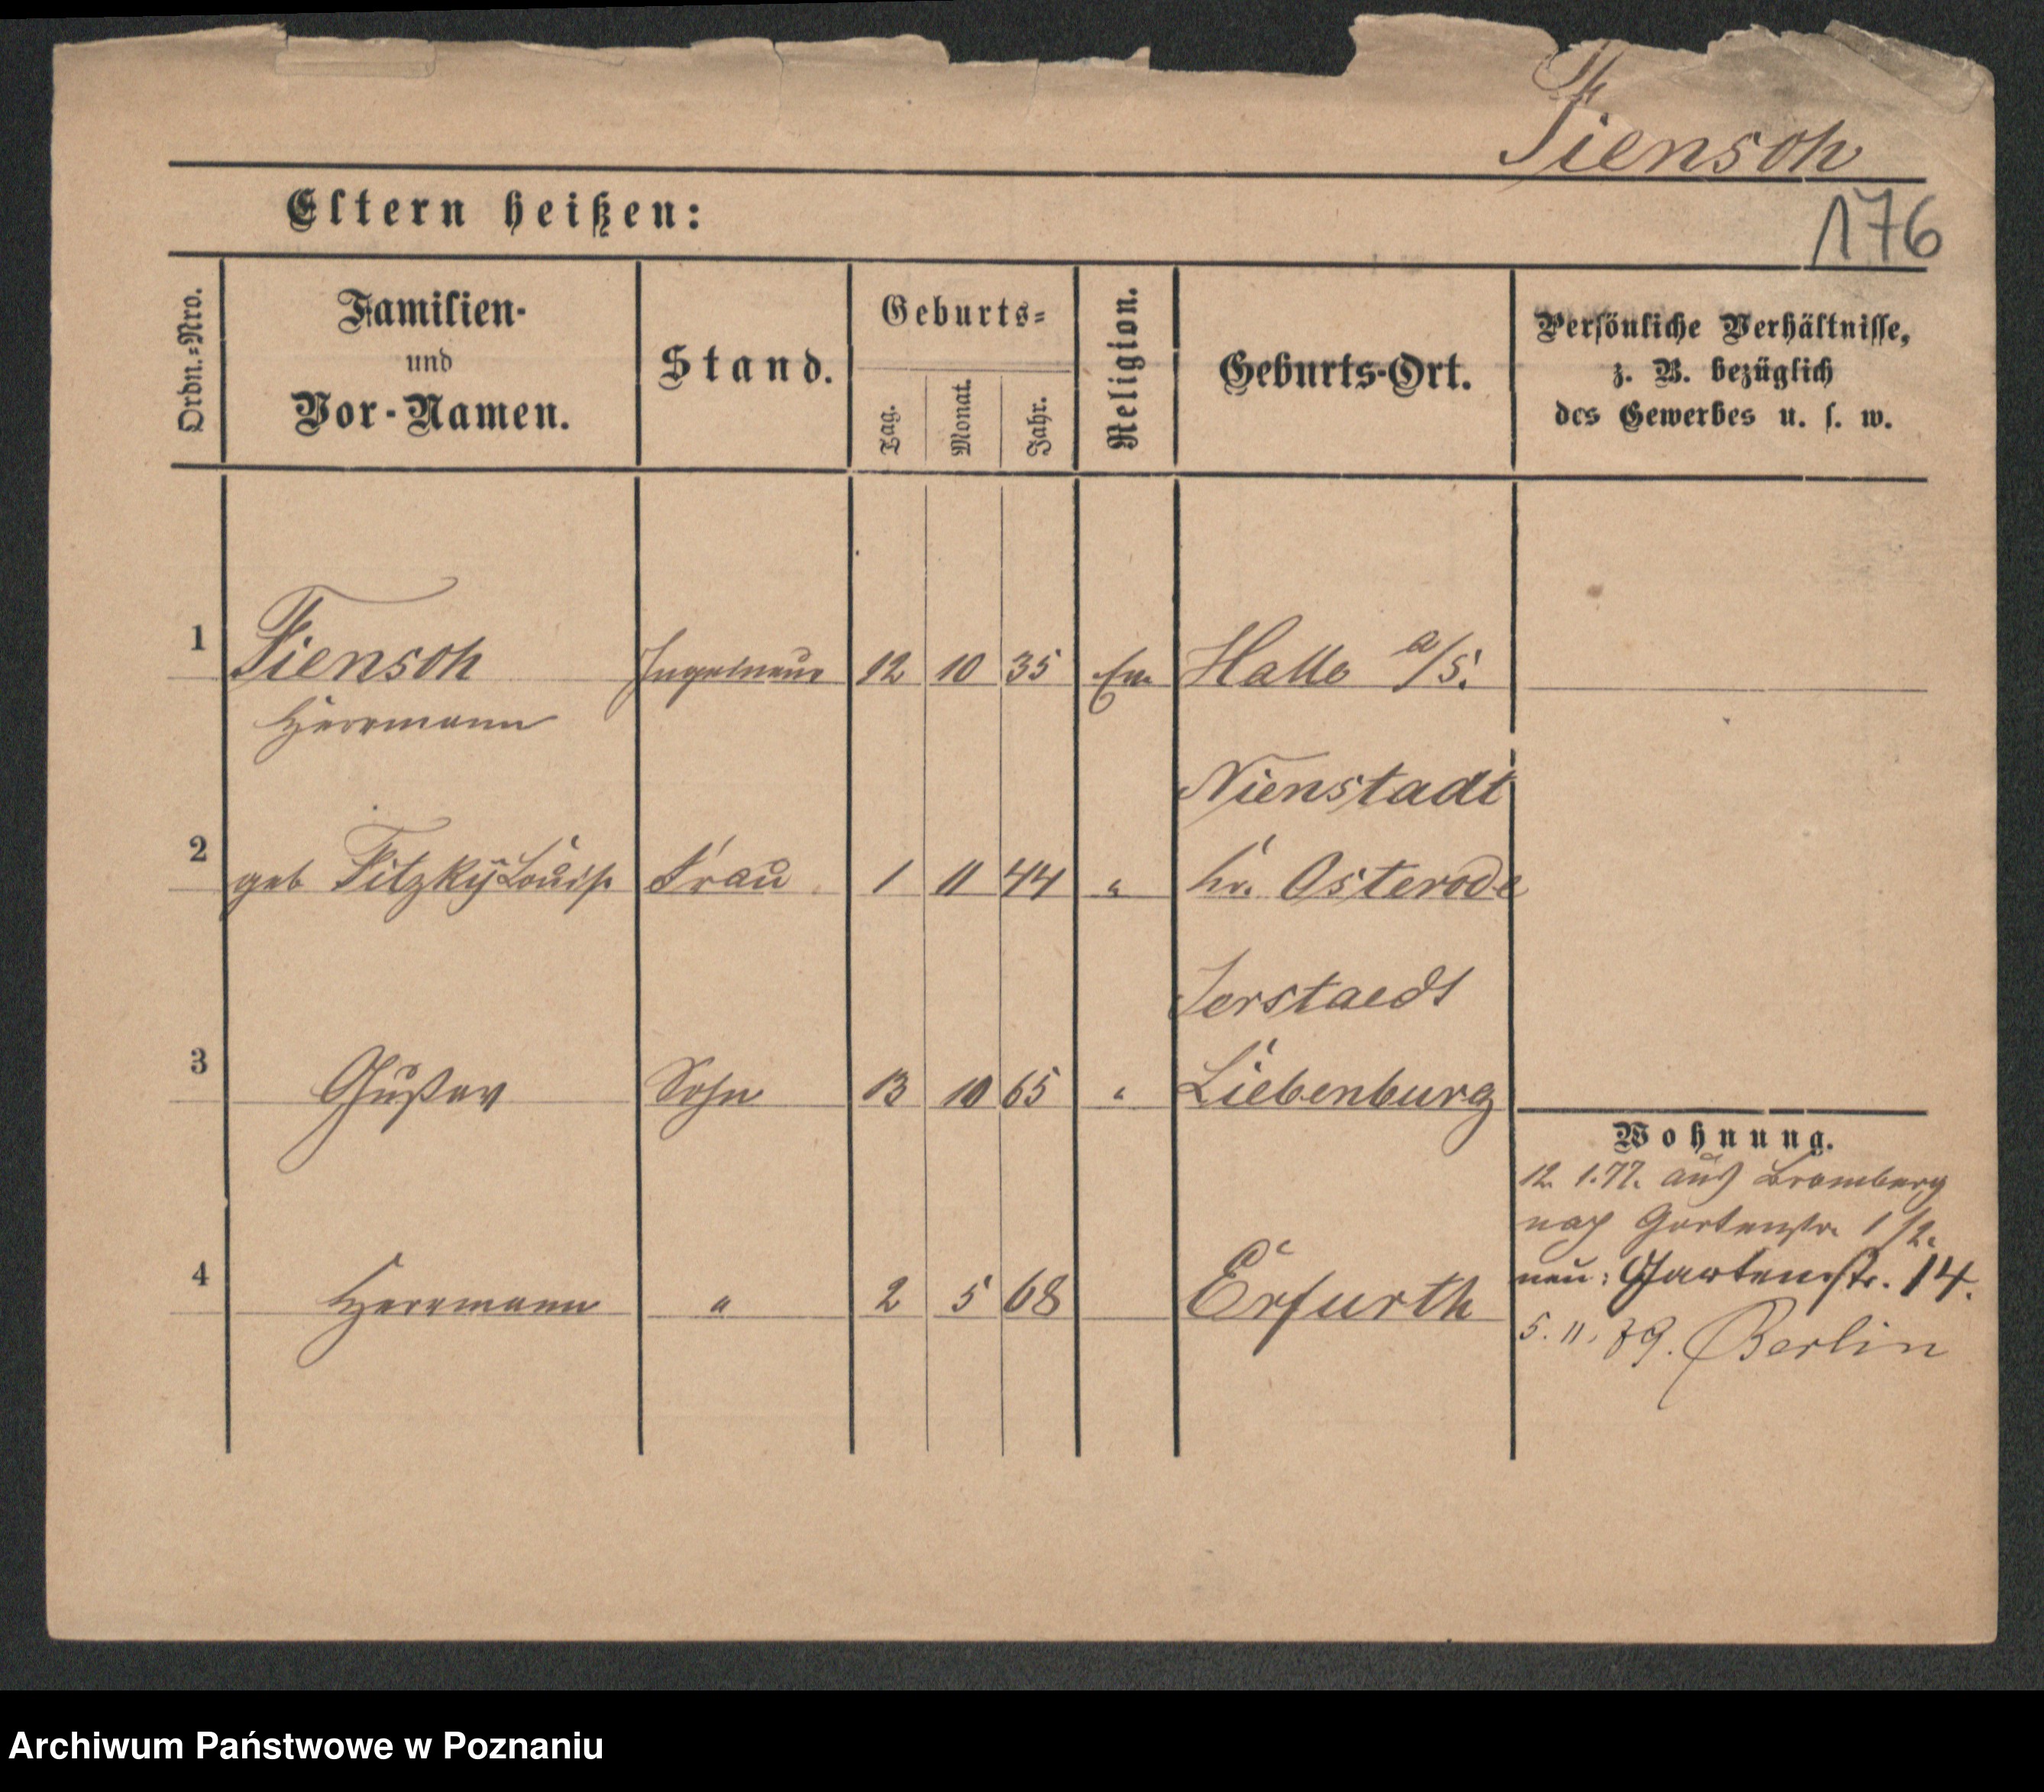 Fiensch
176
Eltern heißen:
Ordn.=Nro.
Familien-
und
Vor-Namen.
Stand.
Geburts=
Tag.
Monat.
Jahr.
Religion.
Geburts-Ort.
Persönliche Verhältnisse,
z. B. bezüglich
des Gewerbes u. s. w.
1 Fiensch 12 10 35 Ev. Halle a/S.
Herrmann
Nienstadt
2 geb Fitzky Louise Frau 1 11 44 " Kr. Osterode
Jerstaedt
3 Gustav Sohn 13 10 65 " Liebenburg
Wohnung.
12. 1. 77. aus Bromberg
nach Gartenstr. 1/2.
neu: Gartenstr. 14.
4 Herrmann " 2 5 68 Erfurth
5. 11. 79. Berlin
Archiwum Państwowe w Poznaniu